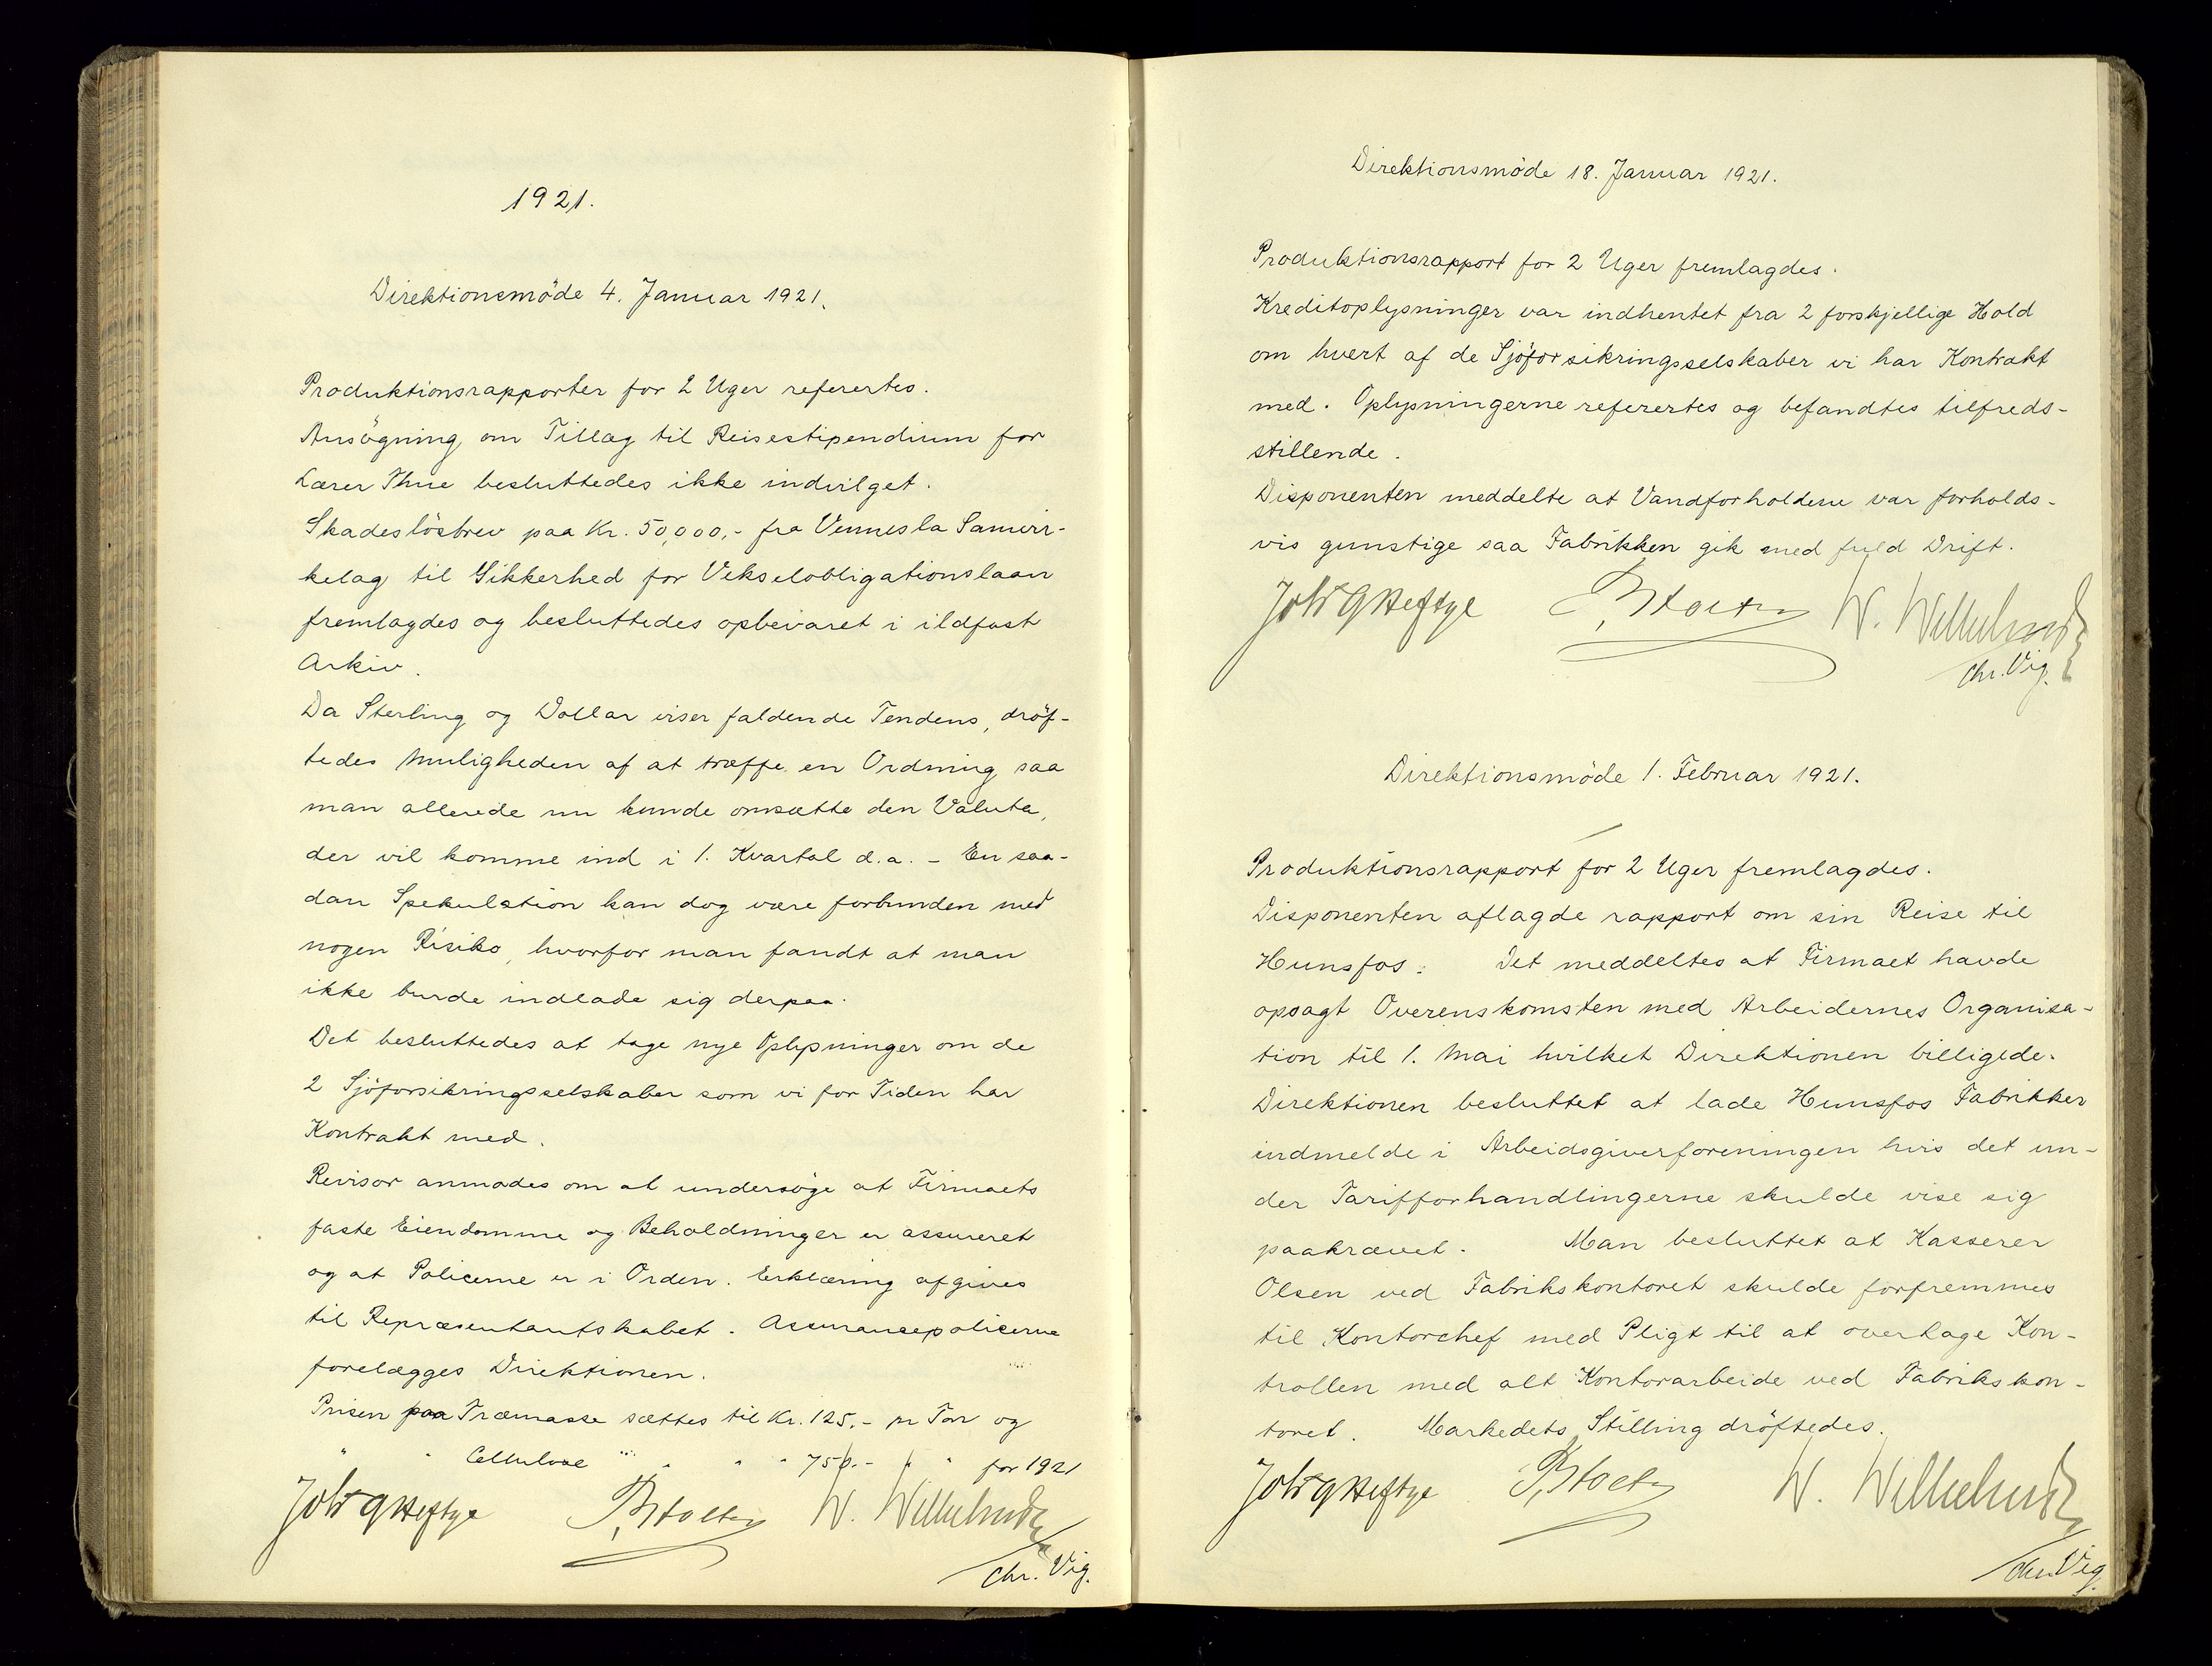 1921.
Direktionsmöde 4. Januar 1921.
Produktionsrapporter for 2 Uger referertes.
Ansögning om Tillæg til Reisestipendium for
Lærer Thue besluttedes ikke indvilget.
Skadeslösbrev paa Kr. 50,000,- fra Vennesla Samvir-
kelag til Sikkerhed for Vekselobligationslaan
fremlagdes og besluttedes opbevaret i ildfast
Arkiv.
Da Sterling og Dollar viser faldende Tendens, dröf-
tedes Muligheden af at træffe en Ordning saa
man allerede nu kunde omsætte den Valuta,
der vil komme ind i 1. Kvartal d.a. - En saa-
dan Spekulation kan dog være forbunden med
nogen Risiko, hvorfor man fandt at man
ikke burde indlade sig derpaa.
Det besluttedes at tage nye Oplysninger om de
2 Sjöforsikringsselskaber som vi for Tiden har
Kontrakt med.
Revisor anmodes om at undersöge at Firmaets
faste Eiendomme og Beholdninger er assureret
og at Policerne er i Orden. Erklæring afgives
til Repræsentantskabet. Assurancepolicerne
forelægges Direktionen.
Prisen paa Træmasse sættes til Kr. 125.- pr Ton og
" " Cellulose " " " 750.- " " for 1921
Joh. G Heftye P. Stolten W. Wilhelmsen
Chr. Vig.
Direktionsmöde 18. Januar 1921.
Produktionsrapport for 2 Uger fremlagdes.
Kreditoplysninger var indhentet fra 2 forskjellige Hold
om hvert af de Sjöforsikringsselskaber vi har Kontrakt
med. Oplysningerne referertes og befandtes tilfreds-
stillende.
Disponenten meddelte at Vandforholdene var forholds-
vis gunstige saa Fabrikken gik med fuld Drift.
Joh. G Heftye P. Stolten W. Wilhelmsen
Chr. Vig.
Direktionsmöde 1. Februar 1921.
Produktionsrapport for 2 Uger fremlagdes.
Disponenten aflagde rapport om sin Reise til
Hunsfos. Det meddeltes at Firmaet havde
opsagt Overenskomsten med Arbeidernes Organisa-
tion til 1. Mai hvilket Direktionen billigede.
Direktionen besluttet at lade Hunsfos Fabrikker
indmelde i Arbeidsgiverforeningen hvis det un-
der Tarifforhandlingerne skulde vise sig
paakrævet. Man besluttet at Kasserer
Olsen ved Fabrikskontoret skulde forfremmes
til Kontorchef med Pligt til at overtage Kon-
trollen med alt Kontorarbeide ved Fabrikskon-
toret. Markedets Stilling dröftedes.
Joh. G Heftye P. Stolten W. Wilhelmsen
Chr. Vig.